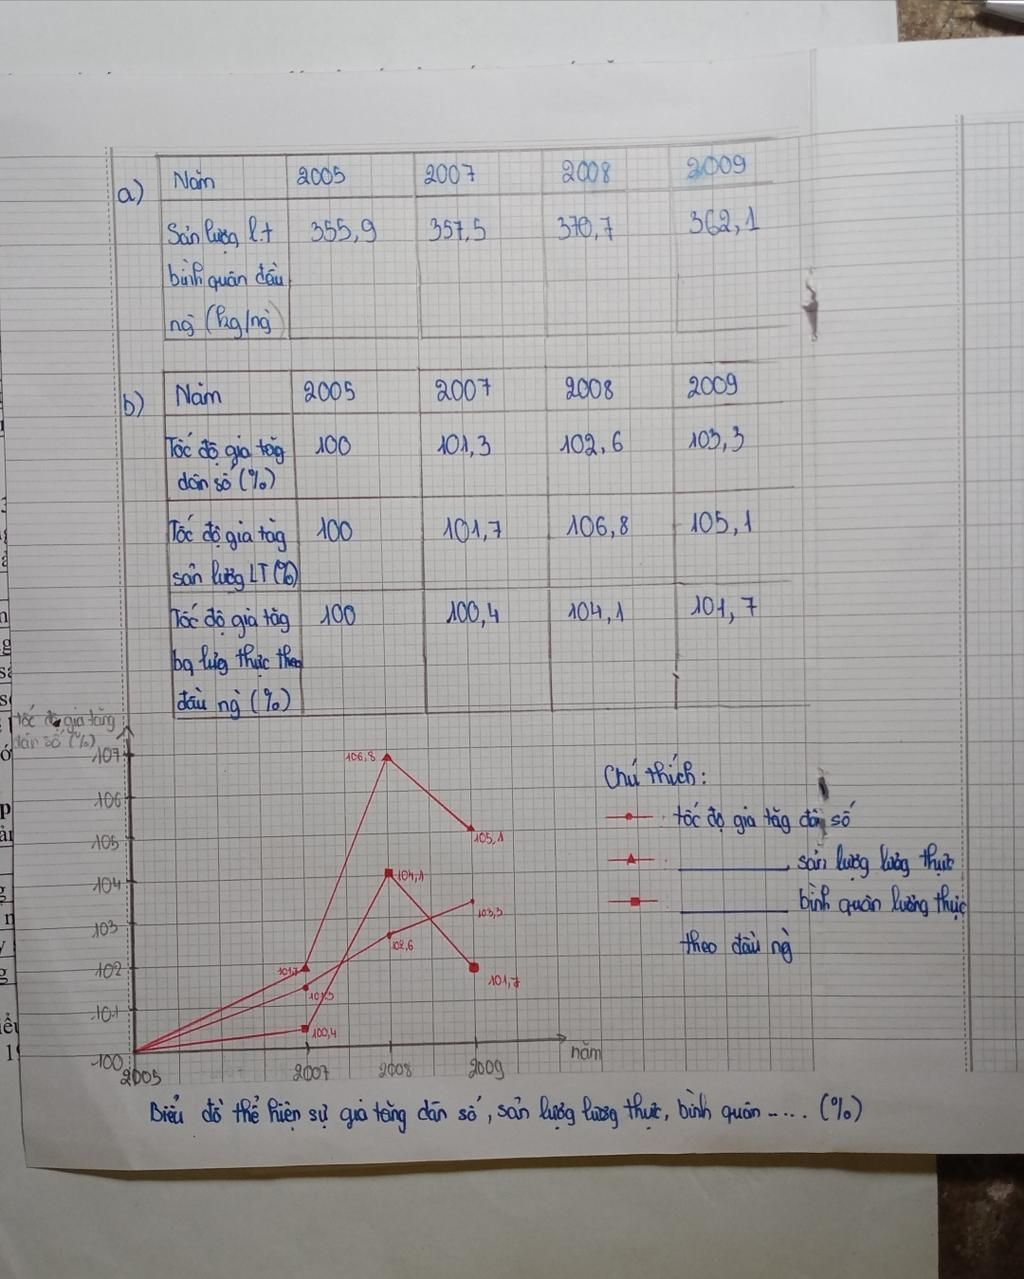 a)
Năm 2005 2007 2008 2009
Sản lượng l.t 355,9 357,5 370,7 362,1
bình quân đầu
ng` (kg/ng`)
b)
Năm 2005 2007 2008 2009
Tốc độ gia tăg 100 101,3 102,6 103,3
dân số (%)
Tốc độ gia tăg 100 101,7 106,8 105,1
sản lượg LT (%)
Tốc độ gia tăg 100 100,4 104,1 101,7
bq lượg thực theo
đầu ng` (%)
tốc độ gia tăng
dân số (%)
107
106
105
104
103
102
101
100
106,8
105,1
104,1
103,3
102,6
101,7
101,7
101,3
100,4
2005 2007 2008 2009
năm
Chú thích:
tốc độ gia tăg dân số
sản lượng lương thực
bình quân lương thực
theo đầu ng`
Biểu đồ thể hiện sự gia tăng dân số, sản lượng lương thực, bình quân ..... (%)